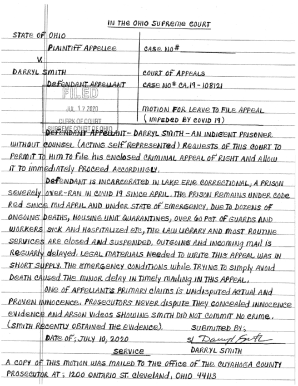 IN THE OHIO SUPREME COURT
STATE OF OHIO
PLAINTIFF APPELLEE
CASE NO#
V.
DARRYL SMITH
COURT OF APPEALS
DEFENDANT APPELLANT
CASE NO# CA.19-108121
FILED
JUL 17 2020
CLERK OF COURT
SUPREME COURT OF OHIO
MOTION FOR LEAVE TO FILE APPEAL
(IMPEDED BY COVID 19)
DEFENDANT APPELLANT-DARRYL SMITH-AN INDIGENT PRISONER
WITHOUT COUNSEL (ACTING SELF REPRESENTED) REQUESTS OF THIS COURT TO
PERMIT TO HIM TO FILE HIS ENCLOSED CRIMINAL APPEAL OF RIGHT AND ALLOW
IT TO IMMEDIATELY PROCEED ACCORDINGLY.
DEFENDANT IS INCARCERATED IN LAKE ERIE CORRECTIONAL, A PRISON
SEVERELY OVER-RAN IN COVID 19 SINCE APRIL. THE PRISON REMAINS UNDER CODE
RED SINCE MID APRIL AND UNDER STATE OF EMERGENCY, DUE TO DOZENS OF
ONGOING DEATHS, HOUSING UNIT QUARANTINES, OVER 60 PCT OF GUARDS AND
WORKERS SICK AND HOSPITALIZED ETC, THE LAW LIBRARY AND MOST ROUTINE
SERVICES ARE CLOSED AND SUSPENDED. OUTGOING AND INCOMING MAIL IS
REGULARLY DELAYED. LEGAL MATERIALS NEEDED TO WRITE THIS APPEAL WAS IN
SHORT SUPPLY. THE EMERGENCY CONDITIONS WHILE TRYING TO SIMPLY AVOID
DEATH CAUSED THE MINOR DELAY IN TIMELY MAILING IN THIS APPEAL.
ONE OF APPELLANTS PRIMARY CLAIMS IS UNDISPUTED ACTUAL AND
PROVEN INNOCENCE. PROSECUTORS NEVER DISPUTE THEY CONCEALED INNOCENCE
EVIDENCE AND ARSON VIDEOS SHOWING SMITH DID NOT COMMIT NO CRIME.
(SMITH RECENTLY OBTAINED THE EVIDENCE).
SUBMITTED BY:
DATE OF: JULY 10, 2020
DARRYL SMITH
SERVICE
A COPY OF THIS MOTION WAS MAILED TO THE OFFICE OF THE CUYAHOGA COUNTY
PROSECUTOR AT: 1200 ONTARIO ST. CLEVELAND, OHIO 44113